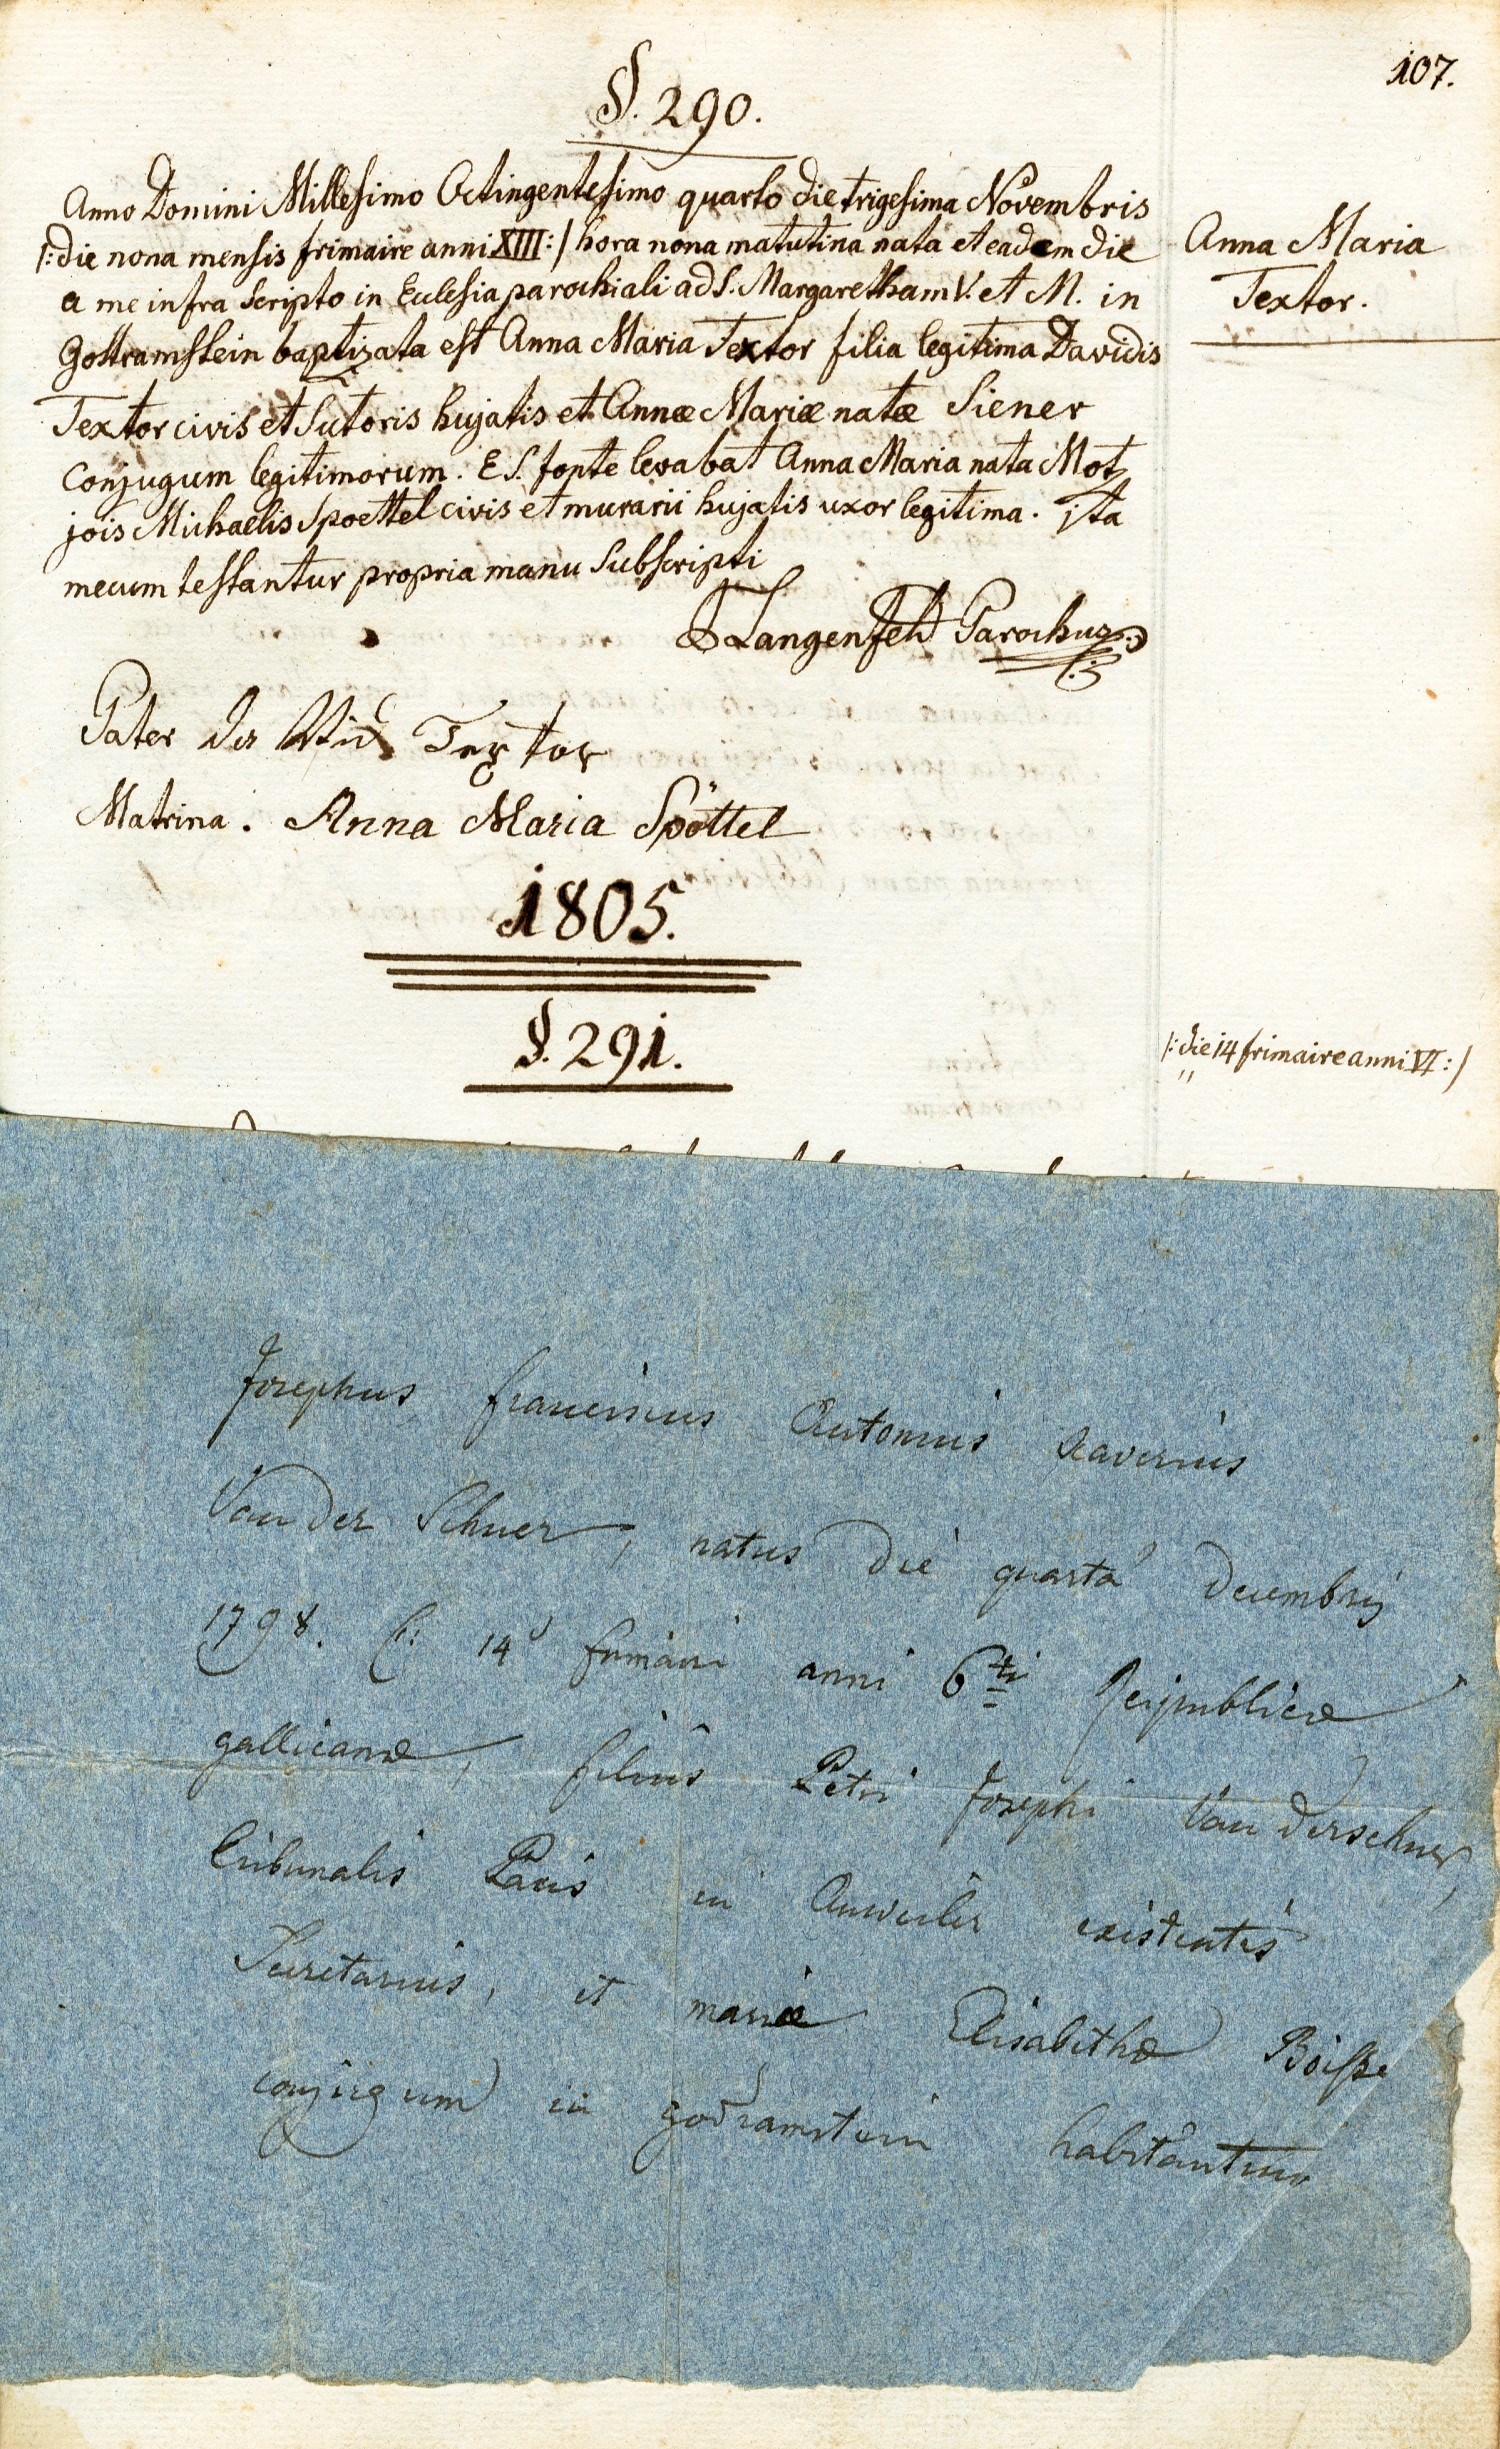 107.
§. 290.
Anno Domini Millesimo Octingentesimo quarto die trigesima Novembris
/: die nona mensis frimaire anni XIII :/ hora nona matutina nata et eadem die
a me infra scripto in Eclesia parochiali ad S. Margaretham V. et M. in
Gottramstein baptizata est Anna Maria Textor filia legitima Davidis
Textor civis et Sutoris hujatis et Annæ Mariæ natæ Siener
Conjugum legitimorum. E S. fonte levabat Anna Maria nata Motz
jois Michaelis Spoettel civis et murarii hujatis uxor legitima. ita
mecum testantur propria manu Subscripti
Langenfeld Parochus
Anna Maria
Textor.
Pater Textor
Matrina. Anna Maria Spöttel
1805.
§. 291.
/: die 14 frimaire anni VI :/
Josephus franciscus Antonius Xaverius
Van Der Schuer, natus die quarta decembris
1798. (: 14 frimairi anni 6ti Reipublicæ
gallicanæ, filius Petri Josephi Van Derschuer,
tribunalis Pacis in Anweiler existentis
Secretarius, et mariæ Elisabethæ Boisse
conjugum in godramstein habitantium